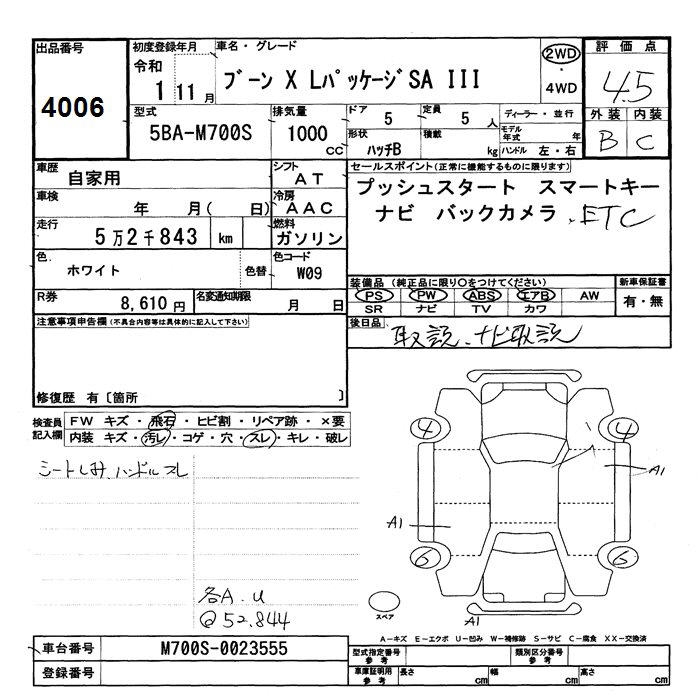 出品番号
4006
初度登録年月 車名・グレード
令和 1 11 月
ブーン X Lパッケージ SA III
2WD
・
4WD
評 価 点
4.5
外 装 内 装
B C
型式
5BA-M700S
排気量
1000 cc
ドア
5
定員
5 人
形状
ハッチB
積載
kg
ディーラー ・ 並行
モデル年式 年
ハンドル 左・右
車歴
自家用
シフト
AT
車検
年 月( 日)
冷房
AAC
走行
5万2千843 km
燃料
ガソリン
色
ホワイト
色替
色コード
W09
R券
8,610 円
名変通知期限
月 日
セールスポイント(正常に機能するものに限ります)
プッシュスタート スマートキー
ナビ バックカメラ .ETC
装備品 (純正品に限り○をつけてください)
PS PW ABS エアB AW
SR ナビ TV カワ
新車保証書
有・無
後日品
取説、ナビ取説
注意事項申告欄(不具合内容等は具体的に記入して下さい)
修復歴 有〔箇所 〕
検査員記入欄
FW キズ ・ 飛石 ・ ヒビ割 ・ リペア跡 ・ ×要
内装 キズ ・ 汚レ ・ コゲ ・ 穴 ・ スレ ・ キレ ・ 破レ
シートしみ、ハンドルスレ
各A.U
@52,844
4 4
A1
A1
6 6
スペア
A1
A-キズ E-エクボ U-凹み W-補修跡 S-サビ C-腐食 XX-交換済
車台番号
M700S-0023555
登録番号
型式指定番号 参考
類別区分番号 参考
車庫証明用 参考
長さ cm 幅 cm 高さ cm